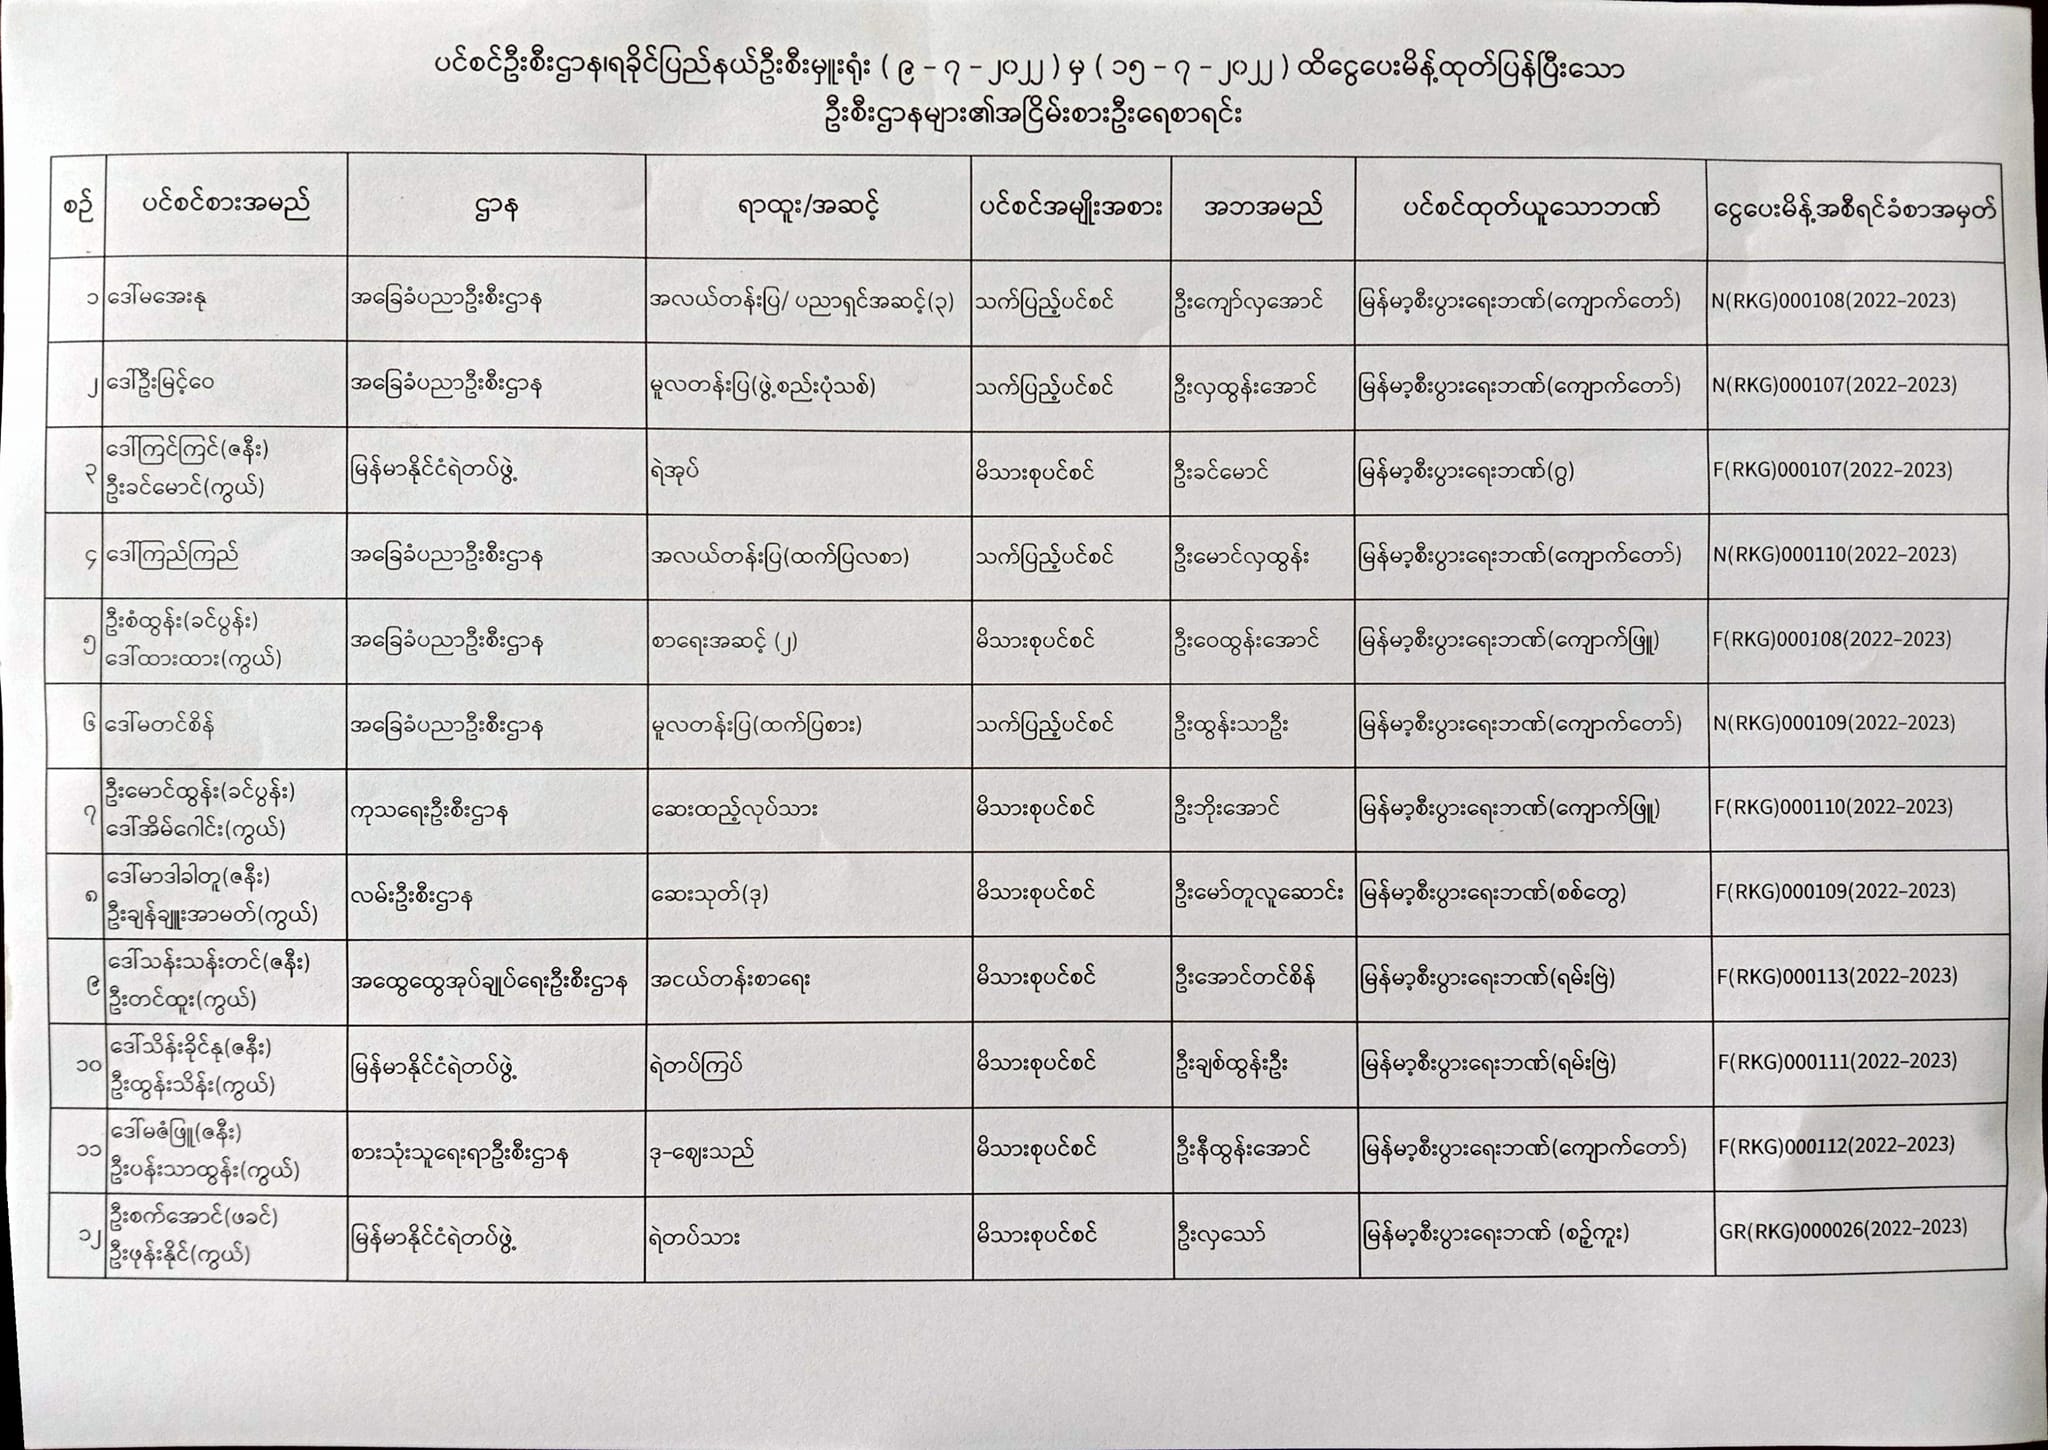 ပင်စင်ဦးစီးဌာန၊ရခိုင်ပြည်နယ်ဦးစီးမှူးရုံး ( ၉ - ၇ - ၂၀၂၂ ) မှ ( ၁၅ - ၇ - ၂၀၂၂ ) ထိငွေပေးမိန့်ထုတ်ပြန်ပြီးသော
ဦးစီးဌာနများ၏အငြိမ်းစားဦးရေစာရင်း
စဉ် ပင်စင်စားအမည် ဌာန ရာထူး/အဆင့် ပင်စင်အမျိုးအစား အဘအမည် ပင်စင်ထုတ်ယူသောဘဏ် ငွေပေးမိန့်အစီရင်ခံစာအမှတ်
၁ ဒေါ်မအေးနု အခြေခံပညာဦးစီးဌာန အလယ်တန်းပြ/ ပညာရှင်အဆင့်(၃) သက်ပြည့်ပင်စင် ဦးကျော်လှအောင် မြန်မာ့စီးပွားရေးဘဏ်(ကျောက်တော်) N(RKG)000108(2022-2023)
၂ ဒေါ်ဦးမြင့်ဝေ အခြေခံပညာဦးစီးဌာန မူလတန်းပြ(ဖွဲ့စည်းပုံသစ်) သက်ပြည့်ပင်စင် ဦးလှထွန်းအောင် မြန်မာ့စီးပွားရေးဘဏ်(ကျောက်တော်) N(RKG)000107(2022-2023)
ဒေါ်ကြင်ကြင်(ဇနီး)
၃ ဦးခင်မောင်(ကွယ်) မြန်မာနိုင်ငံရဲတပ်ဖွဲ့ ရဲအုပ် မိသားစုပင်စင် ဦးခင်မောင် မြန်မာ့စီးပွားရေးဘဏ်(ဂွ) F(RKG)000107(2022-2023)
၄ ဒေါ်ကြည်ကြည် အခြေခံပညာဦးစီးဌာန အလယ်တန်းပြ(ထက်ပြလစာ) သက်ပြည့်ပင်စင် ဦးမောင်လှထွန်း မြန်မာ့စီးပွားရေးဘဏ်(ကျောက်တော်) N(RKG)000110(2022-2023)
ဦးစံထွန်း(ခင်ပွန်း)
၅ ဒေါ်ထားထား(ကွယ်) အခြေခံပညာဦးစီးဌာန စာရေးအဆင့် (၂) မိသားစုပင်စင် ဦးဝေထွန်းအောင် မြန်မာ့စီးပွားရေးဘဏ်(ကျောက်ဖြူ) F(RKG)000108(2022-2023)
၆ ဒေါ်မတင်စိန် အခြေခံပညာဦးစီးဌာန မူလတန်းပြ(ထက်ပြစား) သက်ပြည့်ပင်စင် ဦးထွန်းသာဦး မြန်မာ့စီးပွားရေးဘဏ်(ကျောက်တော်) N(RKG)000109(2022-2023)
ဦးမောင်ထွန်း(ခင်ပွန်း)
၇ ဒေါ်အိမ်ဂေါင်း(ကွယ်) ကုသရေးဦးစီးဌာန ဆေးထည့်လုပ်သား မိသားစုပင်စင် ဦးဘိုးအောင် မြန်မာ့စီးပွားရေးဘဏ်(ကျောက်ဖြူ) F(RKG)000110(2022-2023)
ဒေါ်မာဒါခါတူ(ဇနီး)
၈ ဦးချန်ချူးအာမတ်(ကွယ်) လမ်းဦးစီးဌာန ဆေးသုတ်(ဒု) မိသားစုပင်စင် ဦးမော်တူလူဆောင်း မြန်မာ့စီးပွားရေးဘဏ်(စစ်တွေ) F(RKG)000109(2022-2023)
ဒေါ်သန်းသန်းတင်(ဇနီး)
၉ ဦးတင်ထူး(ကွယ်) အထွေထွေအုပ်ချုပ်ရေးဦးစီးဌာန အငယ်တန်းစာရေး မိသားစုပင်စင် ဦးအောင်တင်စိန် မြန်မာ့စီးပွားရေးဘဏ်(ရမ်းဗြဲ) F(RKG)000113(2022-2023)
ဒေါ်သိန်းခိုင်နု(ဇနီး)
၁၀ ဦးထွန်းသိန်း(ကွယ်) မြန်မာနိုင်ငံရဲတပ်ဖွဲ့ ရဲတပ်ကြပ် မိသားစုပင်စင် ဦးချစ်ထွန်းဦး မြန်မာ့စီးပွားရေးဘဏ်(ရမ်းဗြဲ) F(RKG)000111(2022-2023)
ဒေါ်မဇံဖြူ(ဇနီး)
၁၁ ဦးပန်းသာထွန်း(ကွယ်) စားသုံးသူရေးရာဦးစီးဌာန ဒု-ဈေးသည် မိသားစုပင်စင် ဦးနီထွန်းအောင် မြန်မာ့စီးပွားရေးဘဏ်(ကျောက်တော်) F(RKG)000112(2022-2023)
ဦးစက်အောင်(ဖခင်)
၁၂ ဦးဖုန်းနိုင်(ကွယ်) မြန်မာနိုင်ငံရဲတပ်ဖွဲ့ ရဲတပ်သား မိသားစုပင်စင် ဦးလှသော် မြန်မာ့စီးပွားရေးဘဏ် (စဉ့်ကူး) GR(RKG)000026(2022-2023)